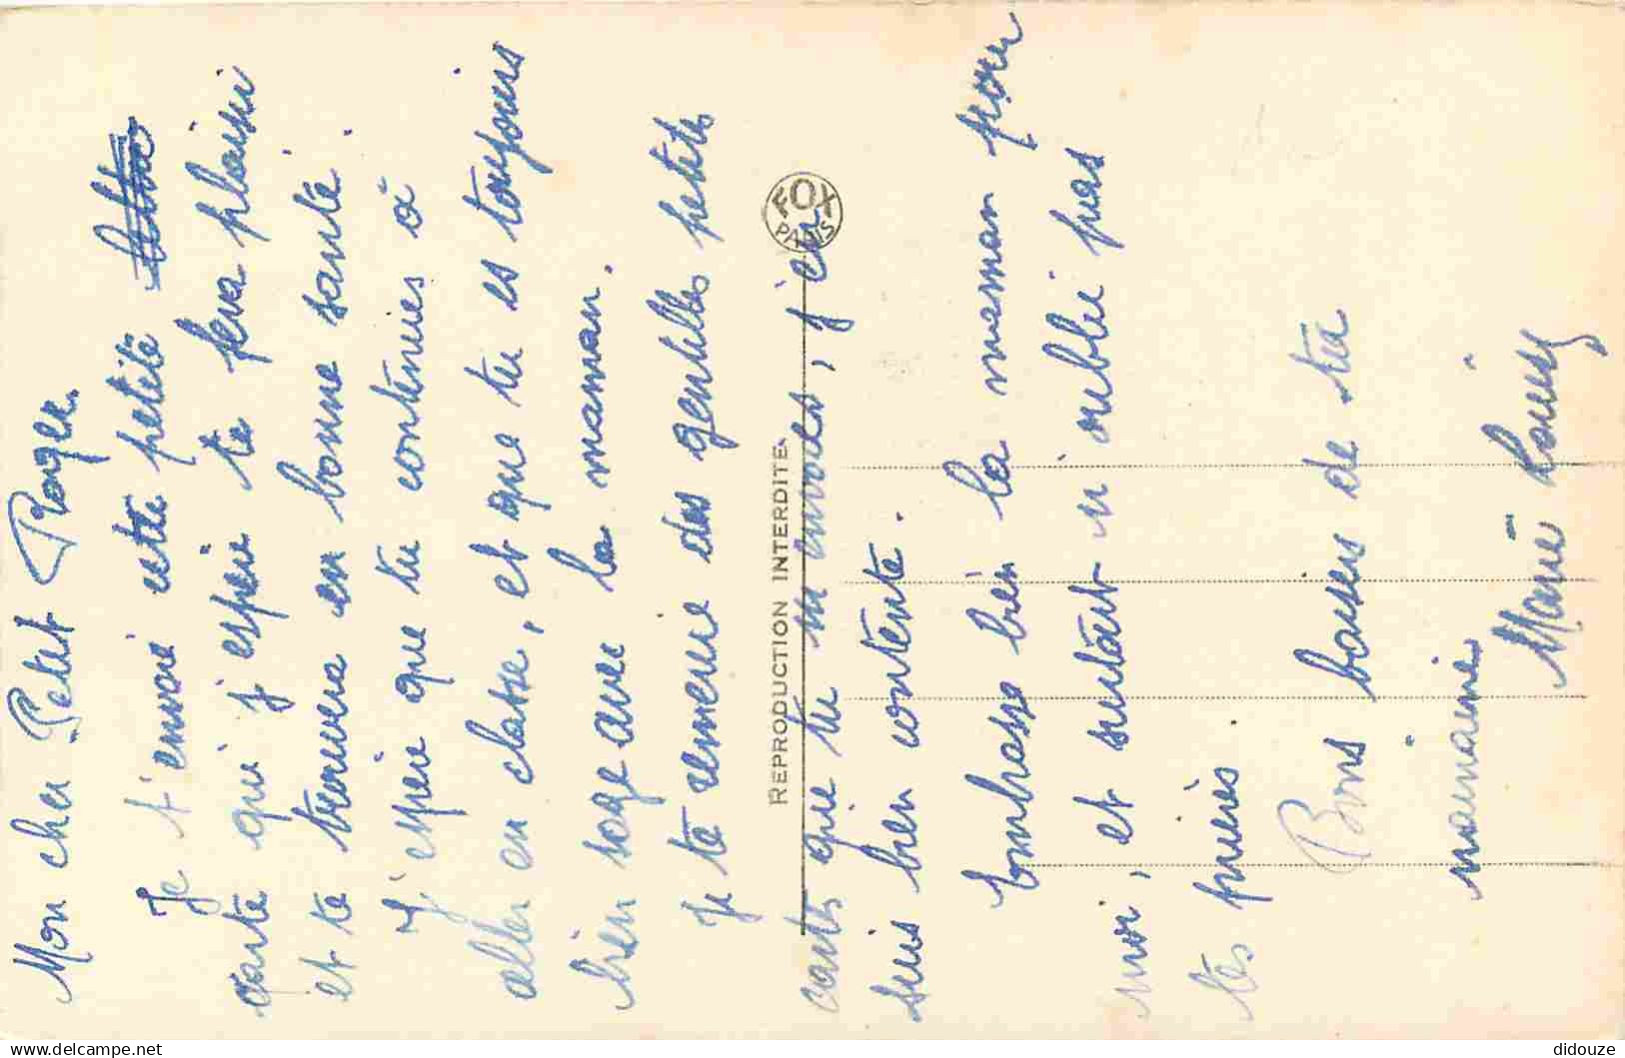 Mon cher Petit Roger
Je t'envoie cette petite
carte qui j'espère te fera plaisir
et te trouvera en bonne santé.
J'espère que tu continues à
aller en classe, et que tu es toujours
bien sage avec la maman.
Je te remercie des gentilles petites
cartes que tu m'envoies, j'en
suis bien contente.
Embrasse bien la maman pour
moi, et surtout n'oublie pas
tes prières
Bons baisers de ta
marraine
Marie Louise
REPRODUCTION INTERDITE
FOX
PARIS
delcampe.net
didouze